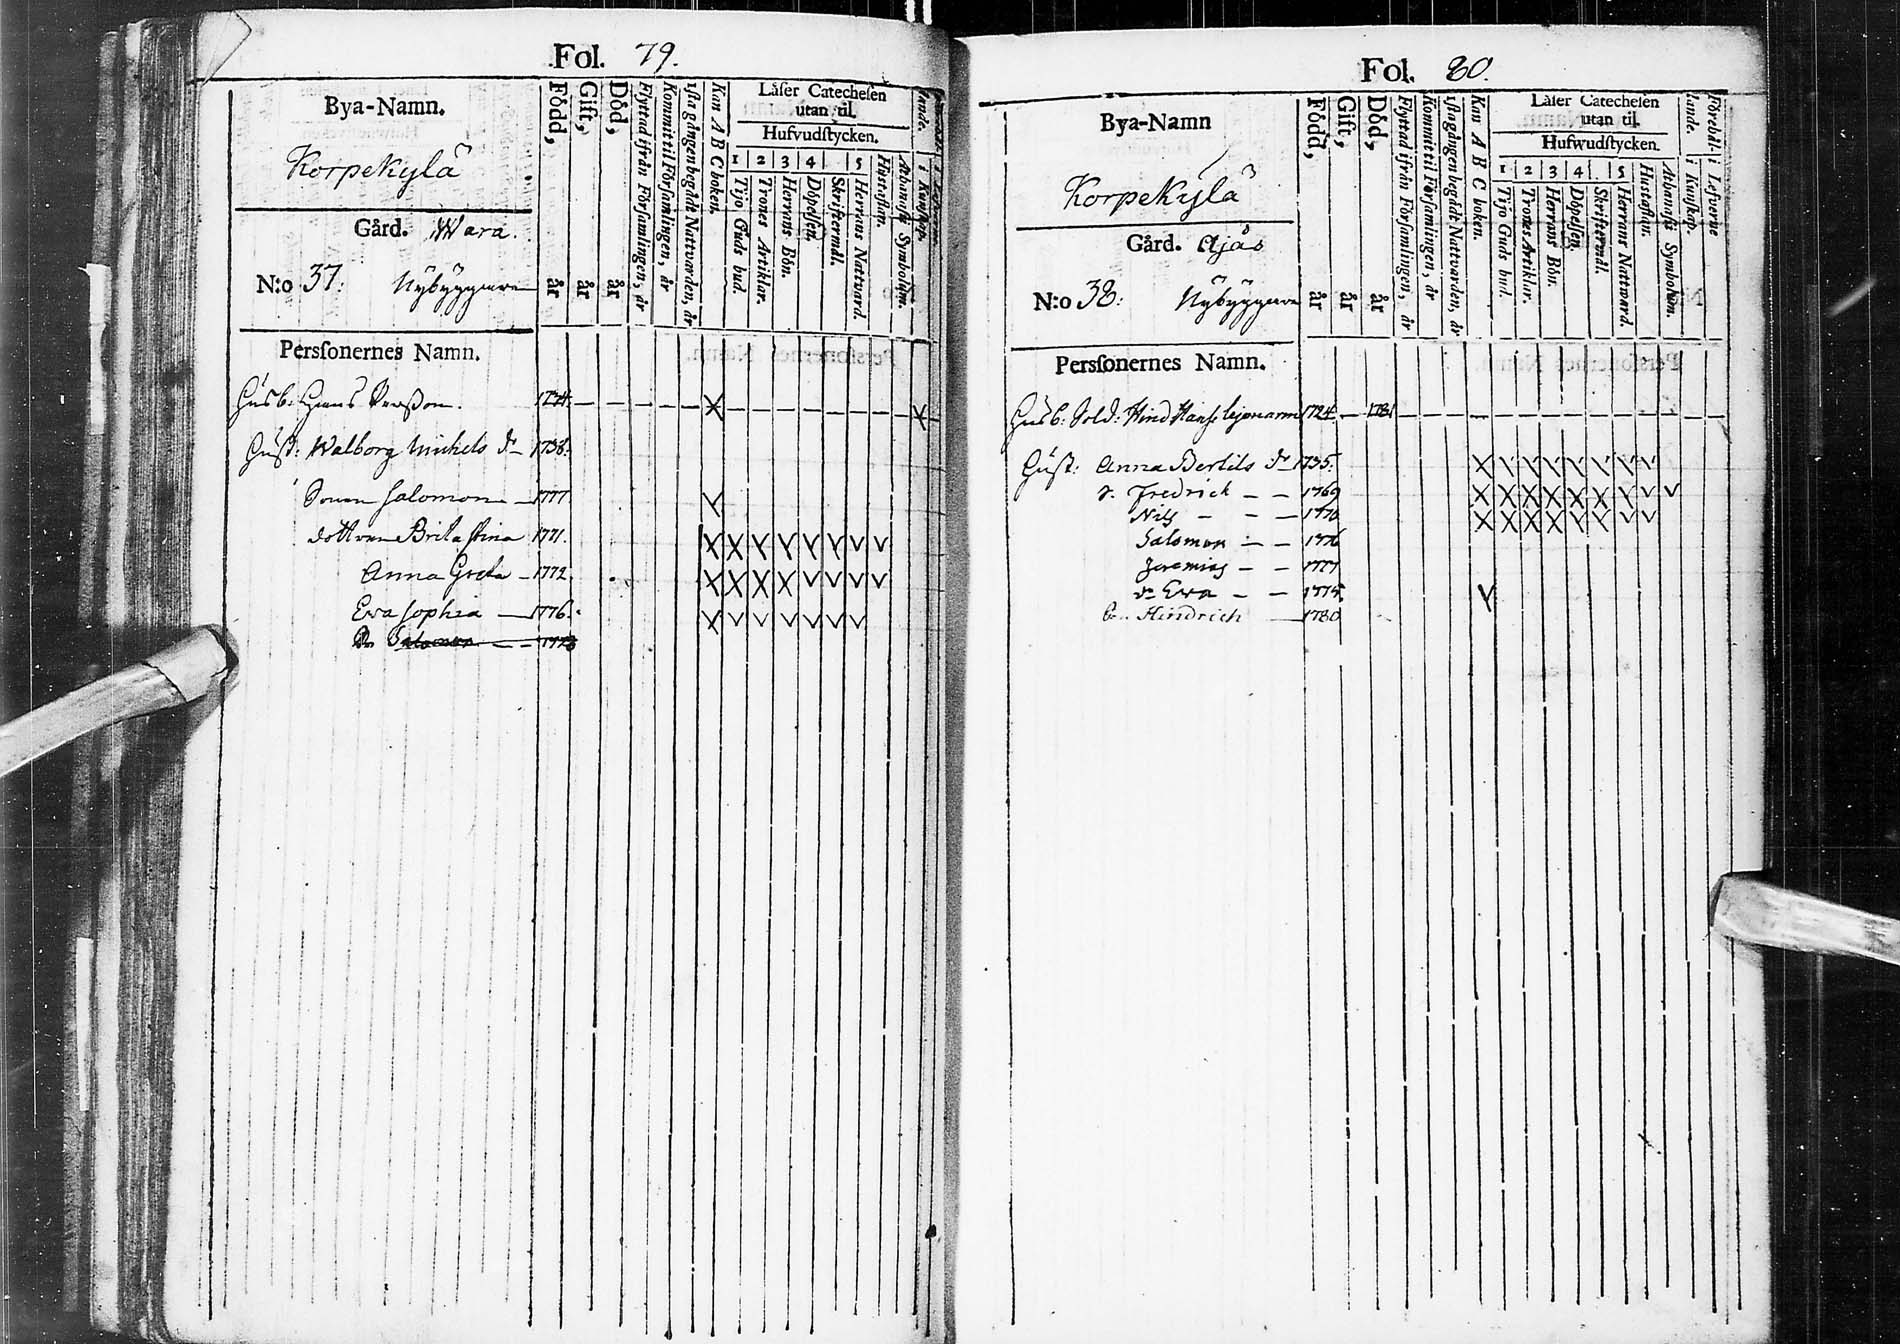 Fol. 79.
Bya-Namn.
Korpekylä
Gård. Wara.
N:o 37. Nybyggare
Född, år
Gift, år
Död, år
Flyttad ifrån Församlingen, år
Kommit til Församlingen, år
1sta gången begådt Nattvarden, år
Kan A B C boken.
Låser Catechesen
utan til.
Hufvudstycken.
1 2 3 4 5
Tijo Guds bud.
Trones Artiklar.
Herrans Bön.
Döpelsen.
Skriftermål.
Herrans Nattvard.
Hustaflan.
Athanasii Symbolum.
lande. i Kunskap.
Persſonernes Namn.
Husb: Hans 1724.
Hust: Walborg Michels dr 1738.
Sonen Salomon 1777
dottren Brita Stina 1771.
Anna Greta 1772.
Eva Sophia 1776.
Sn Salomon
Fol. 80.
Bya-Namn
Korpekylä
Gård. Ajås
N:o 38: Nybyggare
Född, år
Gift, år
Död, år
Flyttad ifrån Församlingen, år
Kommit til Församlingen, år
1sta gången begådt Nattvarden, år
Kan A B C boken.
Låser Catechesen
utan til.
Hufwudstycken.
1 2 3 4 5
Tijo Guds bud.
Trones Artiklar.
Herrans Bön.
Döpelsen.
Skriftermål.
Herrans Nattvard.
Hustaflan.
Athanasii Symbolum.
lande. i Kunskap.
Förehål- i Lefverne
Persſonernes Namn.
Husb: Sold: Hind Hanss 1724. 1781
Hust: Anna Bertils dr 1735.
s. Fredrick 1769
Nils 1770
Salomon 1776
Jeremias 1777
dr Eva 1774.
Sn Hindrich 1780